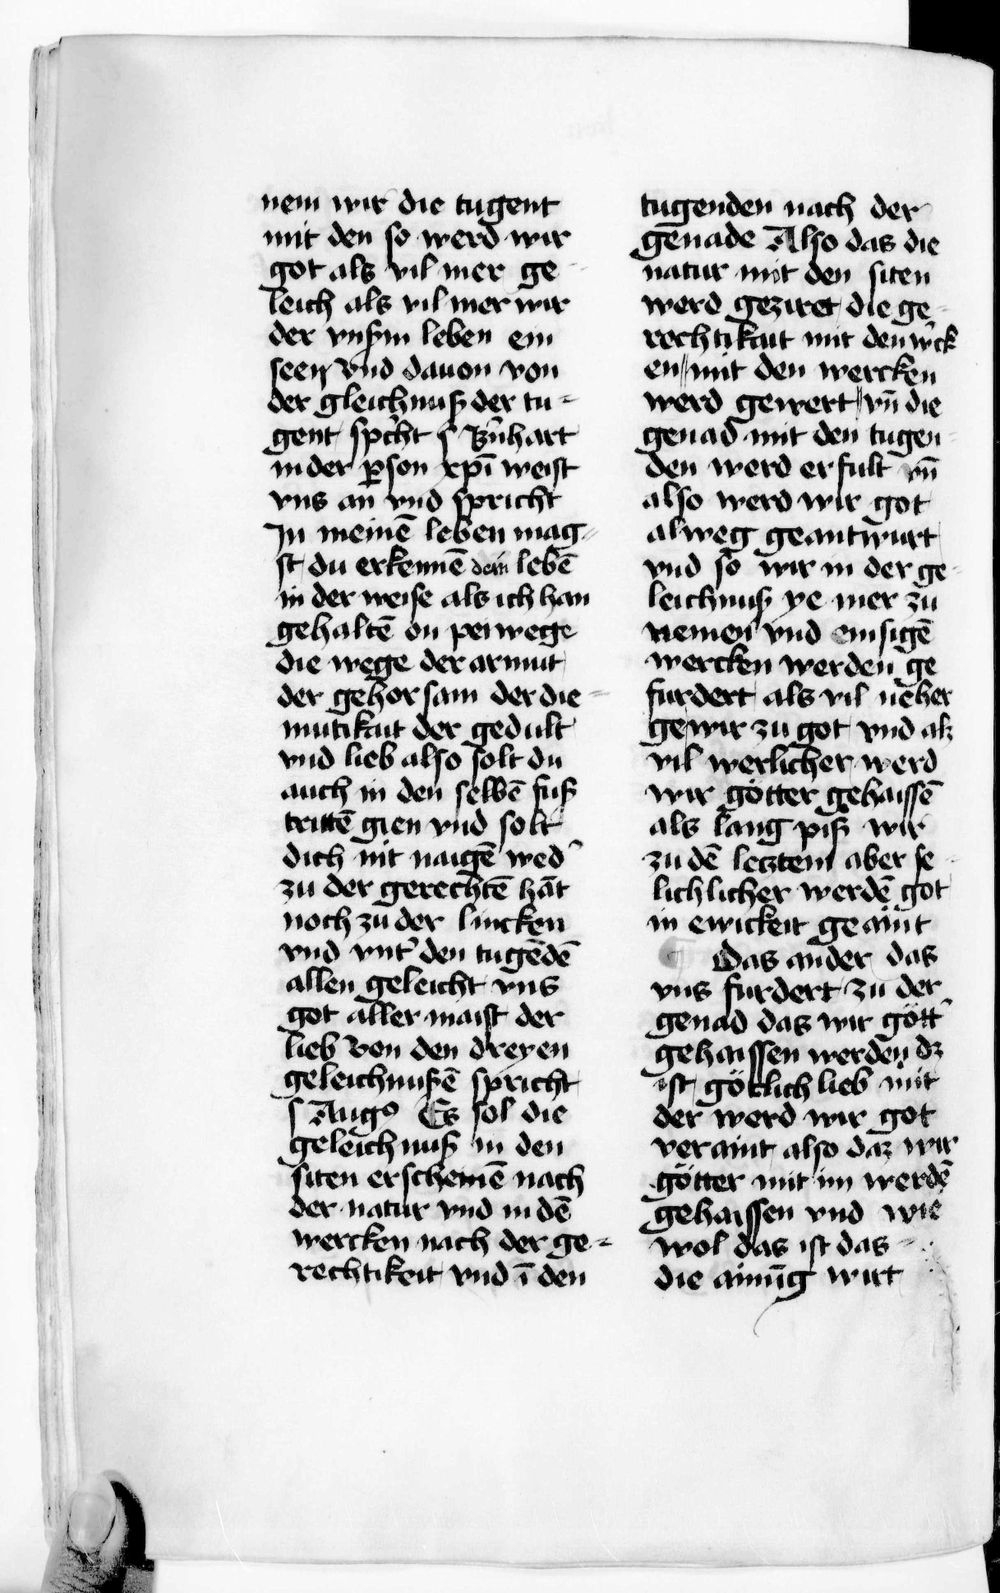 nem wir die tugent
mit den so werd wir
got als vil mer ge
leich als vil mer wir
der vnsm̄ leben ein
seen Vnd dauon von
der gleichnuß der tu=
gent sp̄cht S B̄nhart
in der ꝑson xp̄i weist
vns an vnd spricht
In meinē leben mag=
st du erkennē dein lebē
in der weise als ich han
gehaltē on peiwege
die wege der armut
der gehorsam der die=
mutikait der gedult
vnd lieb also solt du
auch in den selbē fuß
trittē gien vnd solt
dich nit naigē wed̛
zu der gerechtē hāt
noch zu der lincken
vnd vnt̛ den tugēdē
allen geleicht vns
got aller maist der
lieb Von den dreyen
geleichnußē spricht
S Augꝰ Es sol die
geleichnuß in den
siten erscheinē nach
der natur vnd in dē
wercken nach der ge=
rechtikeit vnd ī den
tugenden nach der
genade Also das die
natur mit den siten
werd geziret die ge
rechtikait mit den werck
en mit den wercken
werd gewert vn̄ die
genad mit den tugen
den werd erfult vn̄
also werd wir got
alweg geantwurt
vnd so wir in der ge
leichnuß ye mer zu
niemen vnd emsigē
wercken werden ge
furdert als vil neher
ge wir zu got vnd alz
vil werlicher werd
wir götter gehaissē
als lang piß wir
zu dē letztem aber se
lichlicher werdē got
in ewickeit geaint
Das ander das
vns furdert zu der
genad das wir gött̛
gehaissen werden dz
ist götlich lieb mit
der werd wir got
veraint also daz wir
götter mit im werdē
gehaissen vnd wie
wol das ist das
die ainūg wirt